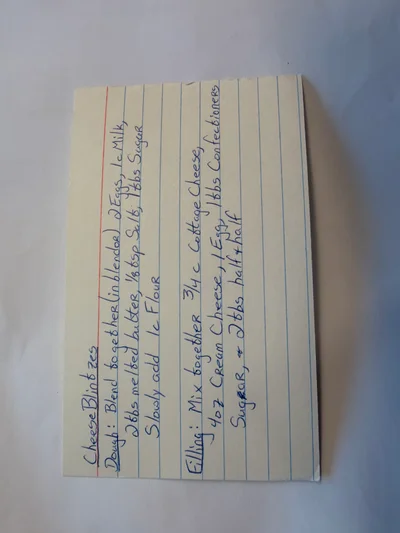 Cheese Blintzes
Dough: Blend together (in blendar) 2 Eggs, 1c Milk,
2tbs melted butter, 1/8 tsp Salt, 1tbs Sugar
Slowly add 1c Flour
Filling: Mix together 3/4 c Cottage Cheese,
4oz Cream Cheese, 1 Egg, 1tbs Confectioners
Sugar, + 2tbs half + half